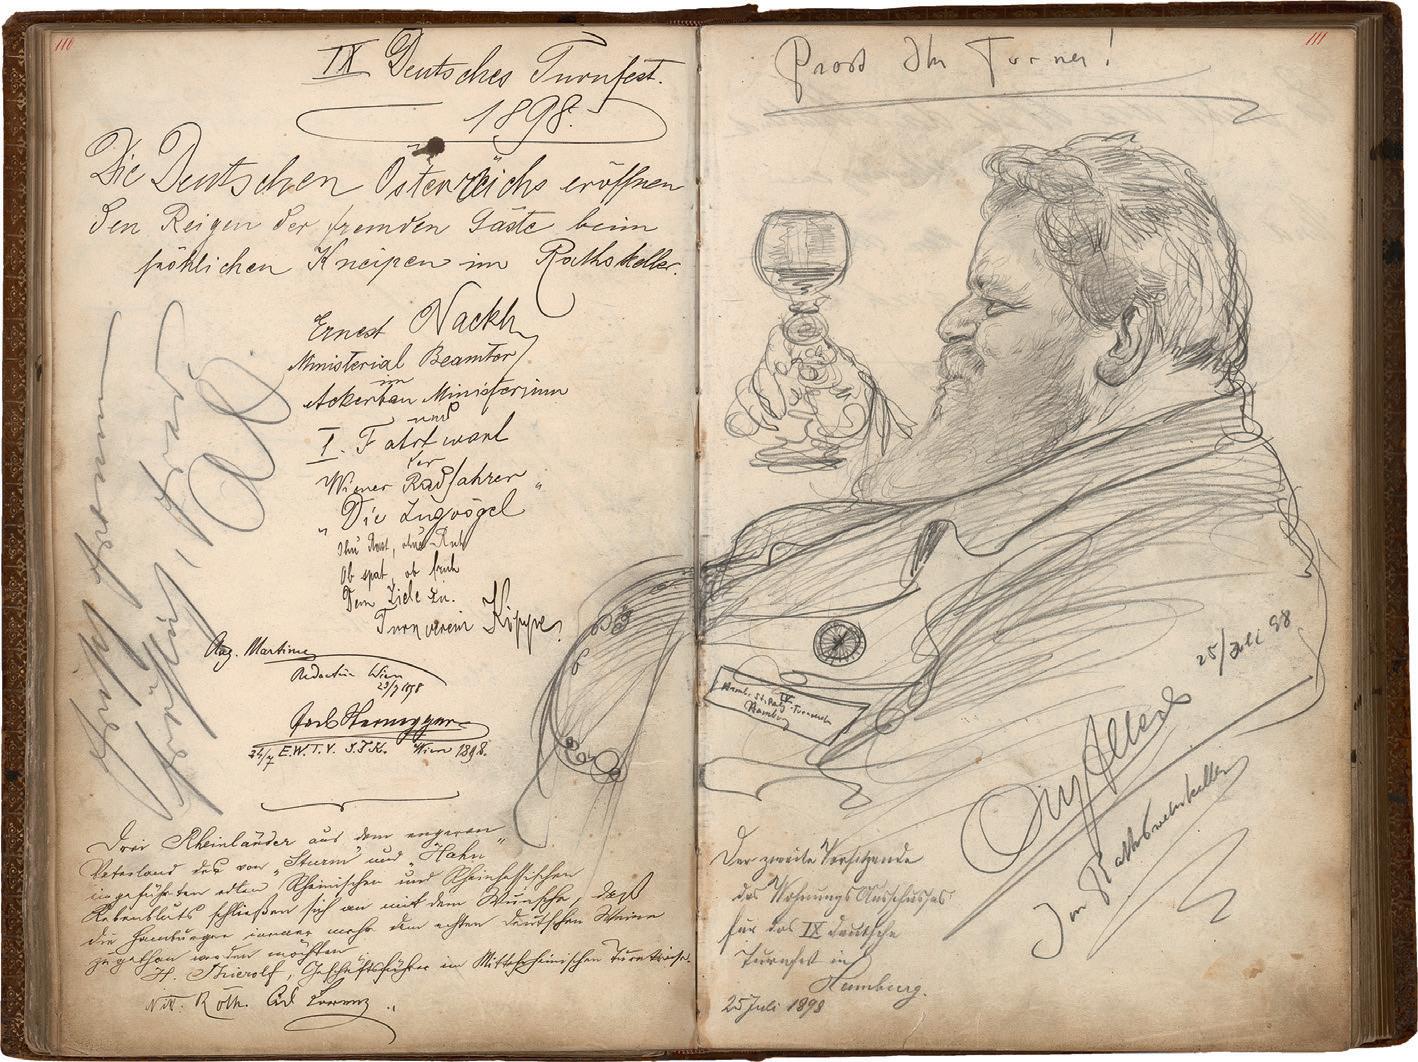 110
IX Deutsches Turnfest.
1898.
Die Deutschen Österreichs eröffnen
den Reigen der fremden Gäste beim
fröhlichen Kneipen im Rathskeller.
Ernest Nackh
Ministerial Beamter
im
Ackerbau Ministerium
und
I. Fahrtwart
der
Wiener Radfahrer
"Die Zugvögel"
Ohne Rast, ohne Ruh
Ob spat, ob fruh
Dem Ziele zu.
Turnverein
Aug. Martinez
Redacteur Wien
23/7 1898
24/7 E.W.T.V. Wien 1898.
Drei Rheinländer aus dem engeren
Vaterland des von "Sturm" und "Hahn"
eingeführten edlen Rheinischen und Rheinhessischen
Rebenbluts schließen sich an mit dem Wunsche, daß
die Hamburger immer mehr dem echten deutschen Weine
zugethan werden möchten
H. Thierolf, Geschäftsführer im Mittelrheinischen Turnkreise.
Röth. Ad. Lorenz
111
Prost Ihr Turner!
IX
Hamburg
25/Juli 98
Allers
Im Rathsweinkeller
Der zweite Vorsitzende
des Wohnungs Ausschusses
für das IX deutsche
Turnfest in
Hamburg.
25 Juli 1898